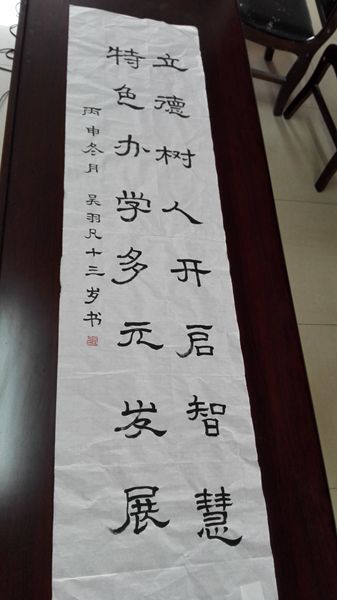 立德树人开启智慧
特色办学多元发展
丙申冬月吴羽凡十三岁书